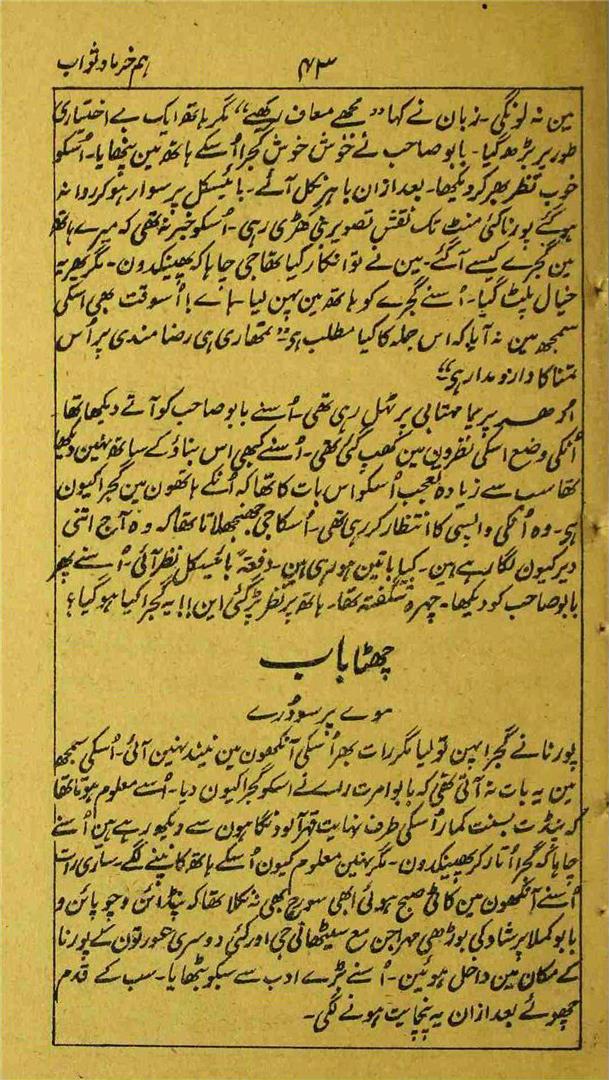 ہم خرما و ثواب
۴۳
مین نہ لونگی۔ زبان نے کہا "مجھے معاف رکھیے" مگر ہاتھ ایک بے اختیاری
طور پر بڑھ گیا۔ بابو صاحب نے خوش خوش گجرا اُسکے ہاتھ مین پنھایا۔ اُسکو
خوب نظر بھر کر دیکھا۔ بعد ازان باہر نکل آئے۔ بائیسکل پر سوار ہو کر روانہ
ہو گئے پورنا کئی منٹ تک نقش تصویر بنی کھڑی رہی۔ اُسکو خبر نہ تھی کہ میرے ہاتھ
مین گجرے کیسے آگئے۔ مین نے تو انکار کیا تھا جی چاہا کہ پھینکدون۔ مگر پھر یہ
خیال پلٹ گیا۔ اُسنے گجرے کو ہاتھ مین پہن لیا۔ ہاے! اُسوقت بھی اسکی
سمجھ مین نہ آیا کہ اس جملہ کا کیا مطلب ہی "تمھاری ہی رضا مندی پر اُس
تمنا کا دارو مدار ہی"
اُدھر پریما مہتابی پر ٹہل رہی تھی۔ اُسنے بابو صاحب کو آتے دیکھا تھا۔
اُنکی وضع اسکی نظرون مین کھب گئی تھی۔ اُسنے کبھی اس بناؤ کے ساتھ نہین دیکھا
تھا سب سے زیادہ تعجب اُسکو اس بات کا تھا کہ اُنکے ہاتھون مین گجرا کیون
ہی۔ وہ اُنکی واپسی کا انتظار کر رہی تھی۔ اُسکا جی جھنجھلاتا تھا کہ وہ آج اتنی
دیر کیون لگا رہے ہین۔ کیا باتین ہو رہی ہین۔ دفعتہً بائیسکل نظر آئی۔ اُسنے پھر
بابو صاحب کو دیکھا۔ چہرہ شگفتہ تھا۔ ہاتھ پر نظر پڑ گئی این!! یہ گجرا کیا ہو گیا؟
چھٹا باب
موے پر سو دُرے
پورنا نے گجرا پہن تو لیا مگر رات بھر اُسکی آنکھون مین نیند نہین آئی۔ اُسکی سمجھ
مین یہ بات نہ آتی تھی کہ بابو امرت راے نے اسکو گجرا کیون دیا۔ اُسے معلوم ہوتا تھا
کہ پنڈت بسنت کمار اُسکی طرف نہایت قہر آلود نگاہون سے دیکھ رہے ہین اُسنے
چاہا کہ گجرا اُتار کر پھینکدون۔ مگر نہین معلوم کیون اُسکے ہاتھ کانپنے لگے۔ ساری رات
اُسنے آنکھون مین کاٹی صبح ہوئی ابھی سورج بھی نہ نکلا تھا کہ پنڈائن و چوبائن و
بابو کملا پرشاد کی بوڑھی مہراجن مع سیٹھانی جی اور کئی دوسری عورتون کے پورنا
کے مکان مین داخل ہوئین۔ اُسنے بڑے ادب سے سبکو بٹھایا۔ سب کے قدم
چھوئے بعد ازان یہ پنچایت ہونے لگی۔